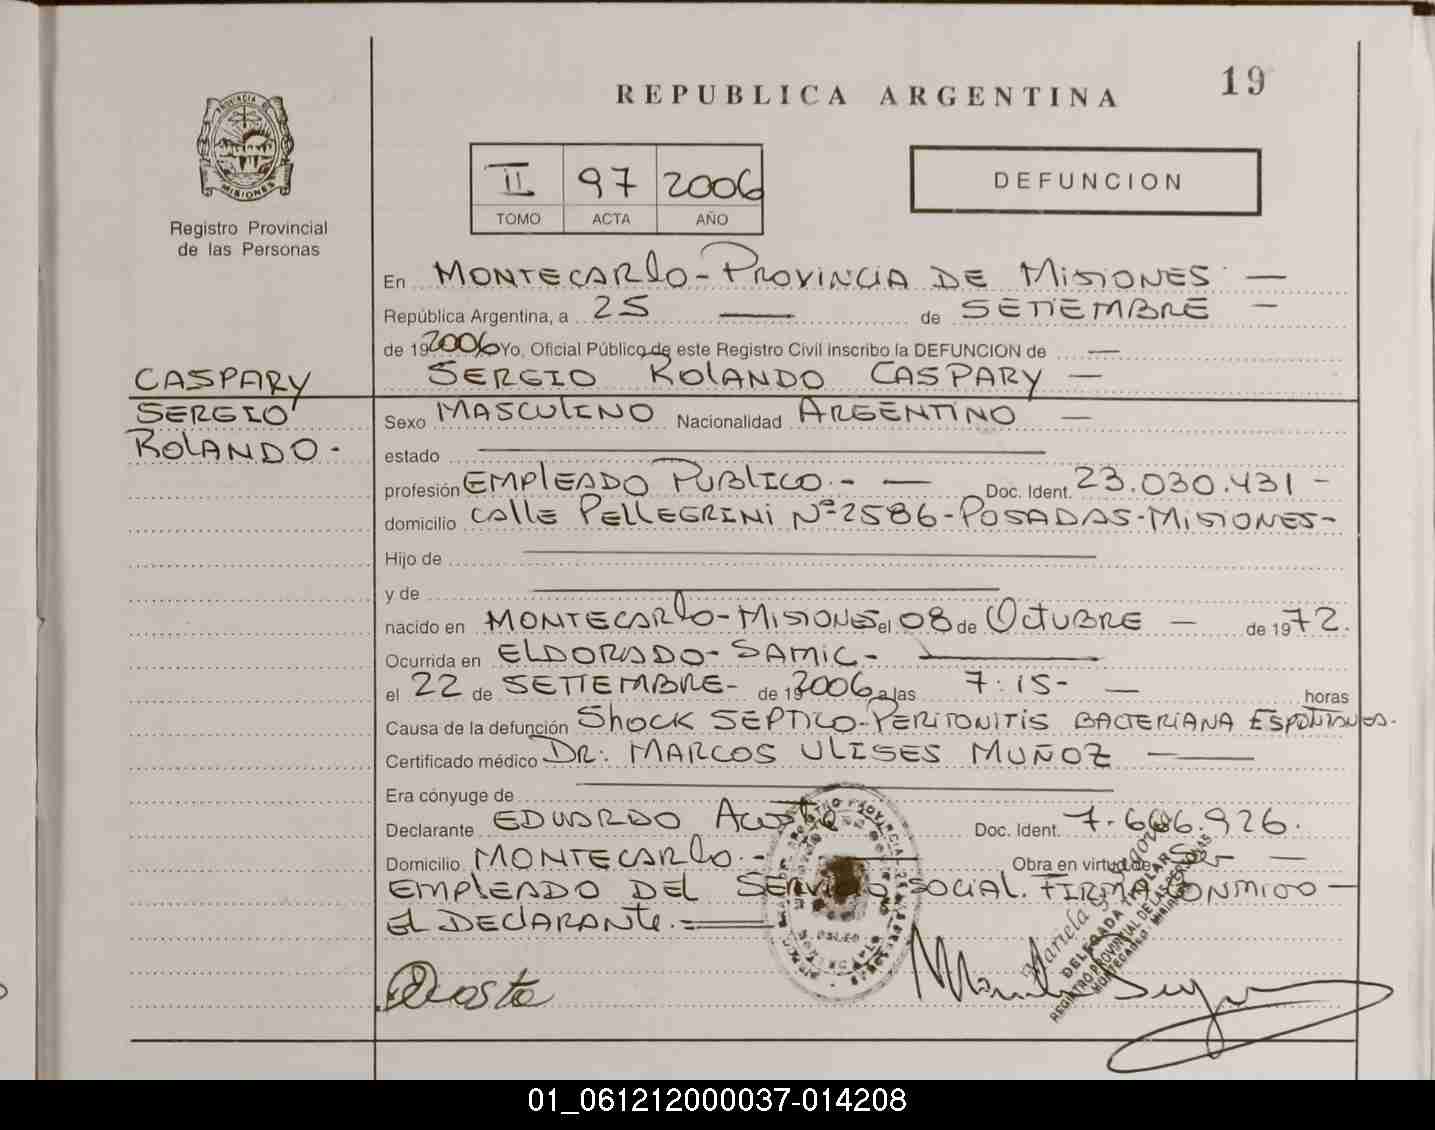 REPUBLICA ARGENTINA
19
PROVINCIA DE
MISIONES
Registro Provincial
de las Personas
II 97 2006
TOMO ACTA AÑO
DEFUNCION
En MONTECARLO - PROVINCIA DE MISIONES —
República Argentina, a 25 — de SETIEMBRE —
de 19 2006 Yo, Oficial Público de este Registro Civil inscribo la DEFUNCION de —
SERGIO ROLANDO CASPARY —
CASPARY
SERGIO
ROLANDO.-
Sexo MASCULINO Nacionalidad ARGENTINO —
estado —
profesión EMPLEADO PUBLICO.- — Doc. Ident. 23.030.431 -
domicilio CALLE PELLEGRINI Nº 2586 - POSADAS - MISIONES -
Hijo de —
y de —
nacido en MONTECARLO - MISIONES el 08 de OCTUBRE — de 1972.
Ocurrida en ELDORADO - SAMIC - —
el 22 de SETIEMBRE - de 19 2006 a las 7:15 - — horas
Causa de la defunción SHOCK SEPTICO - PERITONITIS BACTERIANA
Certificado médico DR: MARCOS ULISES MUÑOZ —
Era cónyuge de —
Declarante EDUARDO Acosta Doc. Ident. 7.666.926.
Domicilio MONTECARLO.- Obra en virtud de Ser —
EMPLEADO DEL SERVICIO SOCIAL. FIRMA CONMIGO —
EL DECLARANTE.=
Acosta
Mariela
DELEGADA TITULAR
REGISTRO PROVINCIAL DE LAS PERSONAS
MONTECARLO - MISIONES
01_061212000037-014208